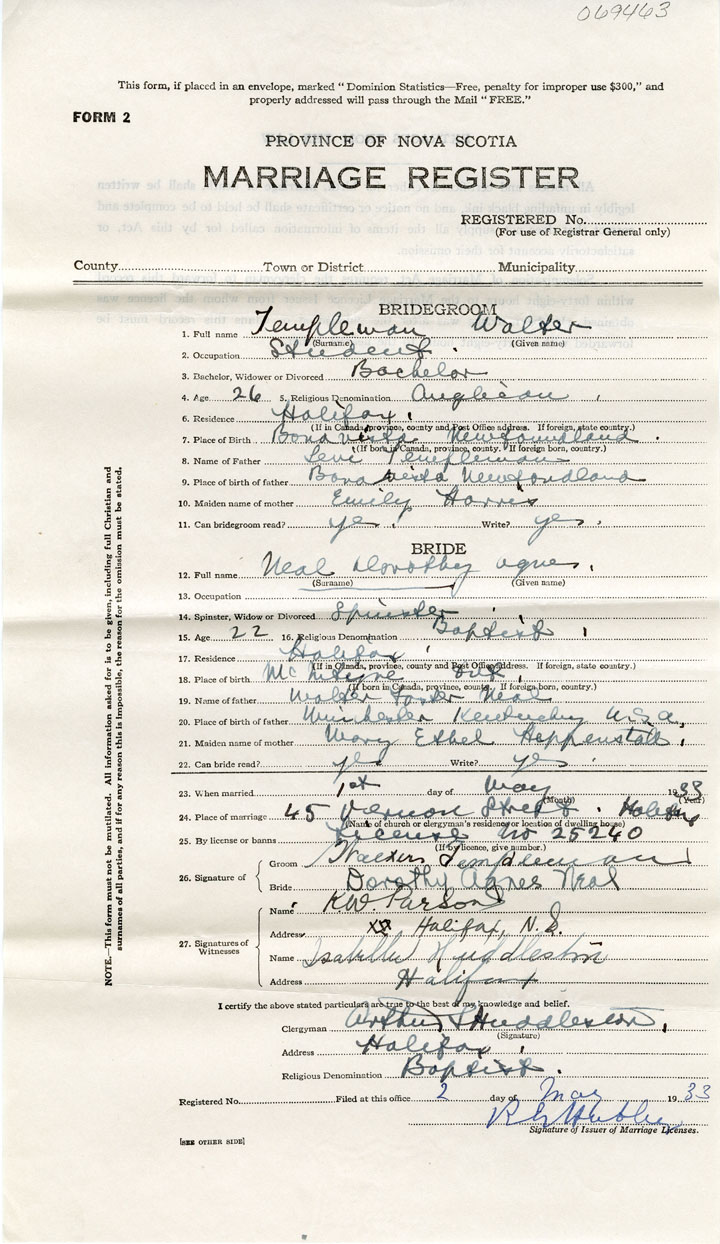 069463
This form, if placed in an envelope, marked "Dominion Statistics—Free, penalty for improper use $300," and
properly addressed will pass through the Mail "FREE."
FORM 2
PROVINCE OF NOVA SCOTIA
MARRIAGE REGISTER
REGISTERED No.
(For use of Registrar General only)
County Town or District Municipality
BRIDEGROOM
1. Full name Templeman Walter
(Surname) (Given name)
2. Occupation Student
3. Bachelor, Widower or Divorced Bachelor
4. Age 26 5. Religious Denomination Anglican
6. Residence Halifax
(If in Canada, province, county and Post Office address. If foreign, state country.)
7. Place of Birth Bonavista Newfoundland
(If born in Canada, province, county. If foreign born, country.)
8. Name of Father Levi Templeman
9. Place of birth of father Bonavista Newfondland
10. Maiden name of mother Emily Harris
11. Can bridegroom read? yes Write? yes
BRIDE
12. Full name Neal Dorothy Agnes
(Surname) (Given name)
13. Occupation
14. Spinster, Widow or Divorced Spinster
15. Age 22 16. Religious Denomination Baptist
17. Residence Halifax
(If in Canada, province, county and Post Office address. If foreign, state country.)
18. Place of birth Ont
(If born in Canada, province, county. If foreign born, country.)
19. Name of father Walter Foster Neal
20. Place of birth of father Winchester Kentucky U.S.A.
21. Maiden name of mother Mary Ethel Heppenstall
22. Can bride read? yes Write? yes
23. When married 1st day of May 1933
(Month) (Year)
24. Place of marriage 45 Vernon Street Halifax
(Name of church or clergyman's residence or location of dwelling house)
25. By license or banns License No 25240
(If by licence, give number.)
26. Signature of
Groom Templeman
Bride Dorothy Agnes Neal
27. Signatures of Witnesses
Name K.W. Parsons
Address Halifax, N.S.
Name Isabelle Huddleston
Address Halifax
I certify the above stated particulars are true to the best of my knowledge and belief.
Clergyman Arthur S Huddleston
(Signature)
Address Halifax
Religious Denomination Baptist
Registered No. Filed at this office 2 day of May 1933
Signature of Issuer of Marriage Licenses.
[SEE OTHER SIDE]
NOTE.—This form must not be mutilated. All information asked for is to be given, including full Christian and
surnames of all parties, and if for any reason this is impossible, the reason for the omission must be stated.